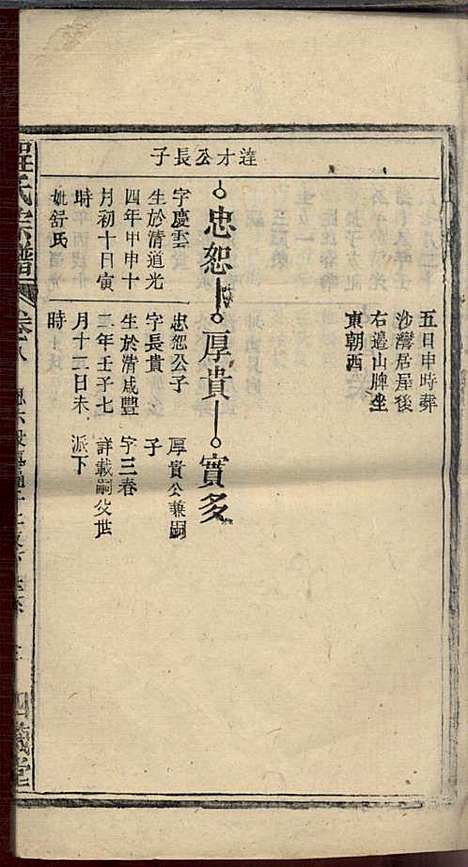 五日申時葬
沙灣居屋後
右邉山牌坐
東朝西
達才公長子
忠恕
厚貴
實多
字慶雲
生於清道光
四年甲申十
月初十日寅
時
妣舒氏
忠恕公子
字長貴
生於清咸豐
二年壬子七
月十二日未
時
厚貴公兼嗣
子
字三春
詳載嗣父世
派下
氏宗譜
卷八
義堂